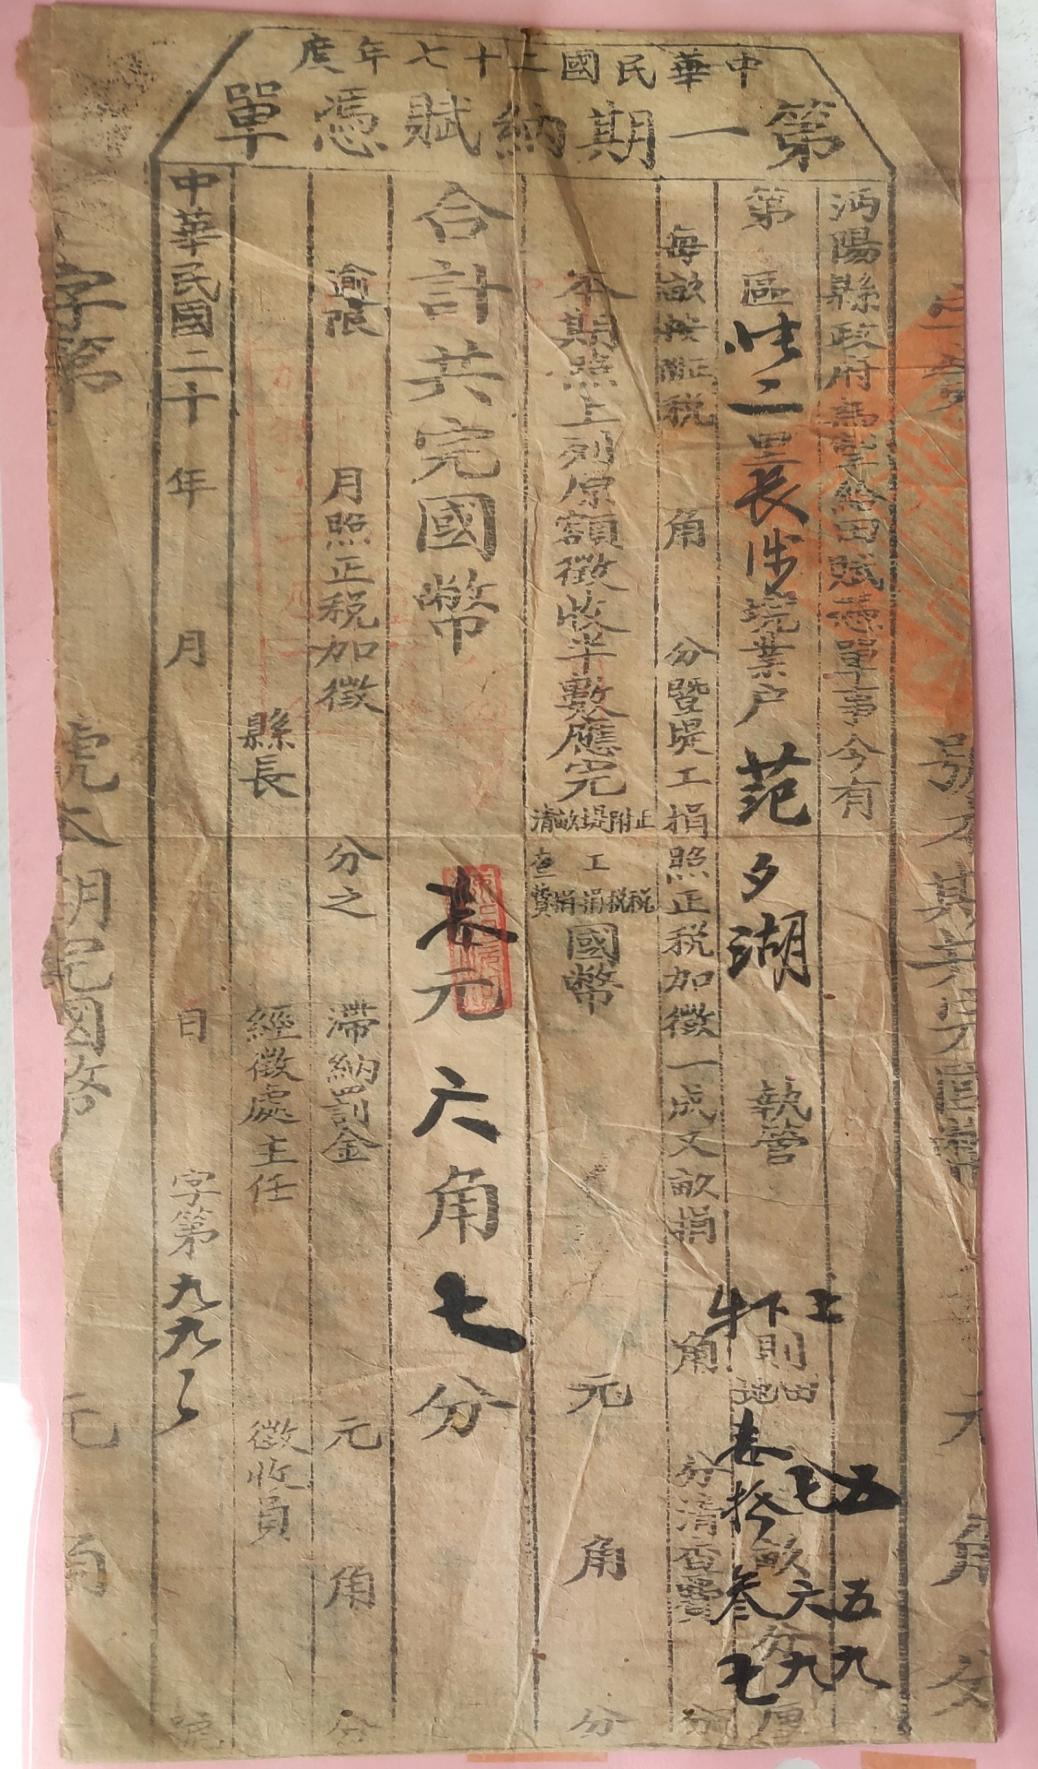 中華民國二十七年度
第一期納賦憑單
沔陽縣政府為掣給田賦憑單事今有
第區 二里長 境業户范夕湖執管 上下牛則田地 五七壹拾畝五六叁分九九七厘
每畝按征税 角 分暨堤工捐照正税加徵一成又畝捐 角 分清查費 分
本期照上列原額徵收半數應完正税附税堤工捐畝捐清查費國幣 元 角 分
合計共完國幣 元六角七分
逾限 月照正税加徵 分之 滯納罰金 元 角 分
縣長 經徵處主任 徵收員
中華民國二十 年 月 日 字第九九 號
字第 號本期完國幣 元 角